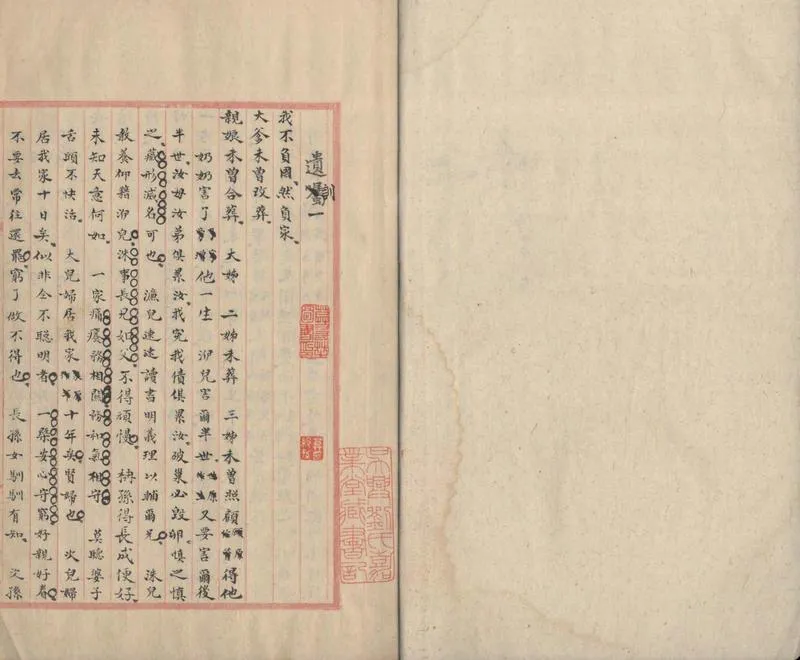 遺訓一
我不負國然負家
大爹未曾改葬
親娘未曾合葬 大姊 二姊未葬 三姊未曾照顧得他
奶奶害了他一生 洢兒害爾半世又要害爾後
半世汝母汝弟俱累汝我冤我債俱累汝破巢必毀卵慎之慎
之藏形滅名可也 漁兒速速讀書明義理以輔爾兄 洙兒
教養仰籍洢兒洙事長兄如父不得頑慢 柟孫得長成便好
未知天意何如 一家痛癢務相關務和氣相守 莫聽婆子
舌頭不快活 大兒婦居我家十年矣賢婦也 次兒婦
居我家十日矣似非全不聰明者一槩安心守窮好親好眷
不要去常往還罷窮了做不得也 長孫女馴馴有知 次孫
吳興劉氏嘉業堂藏書記